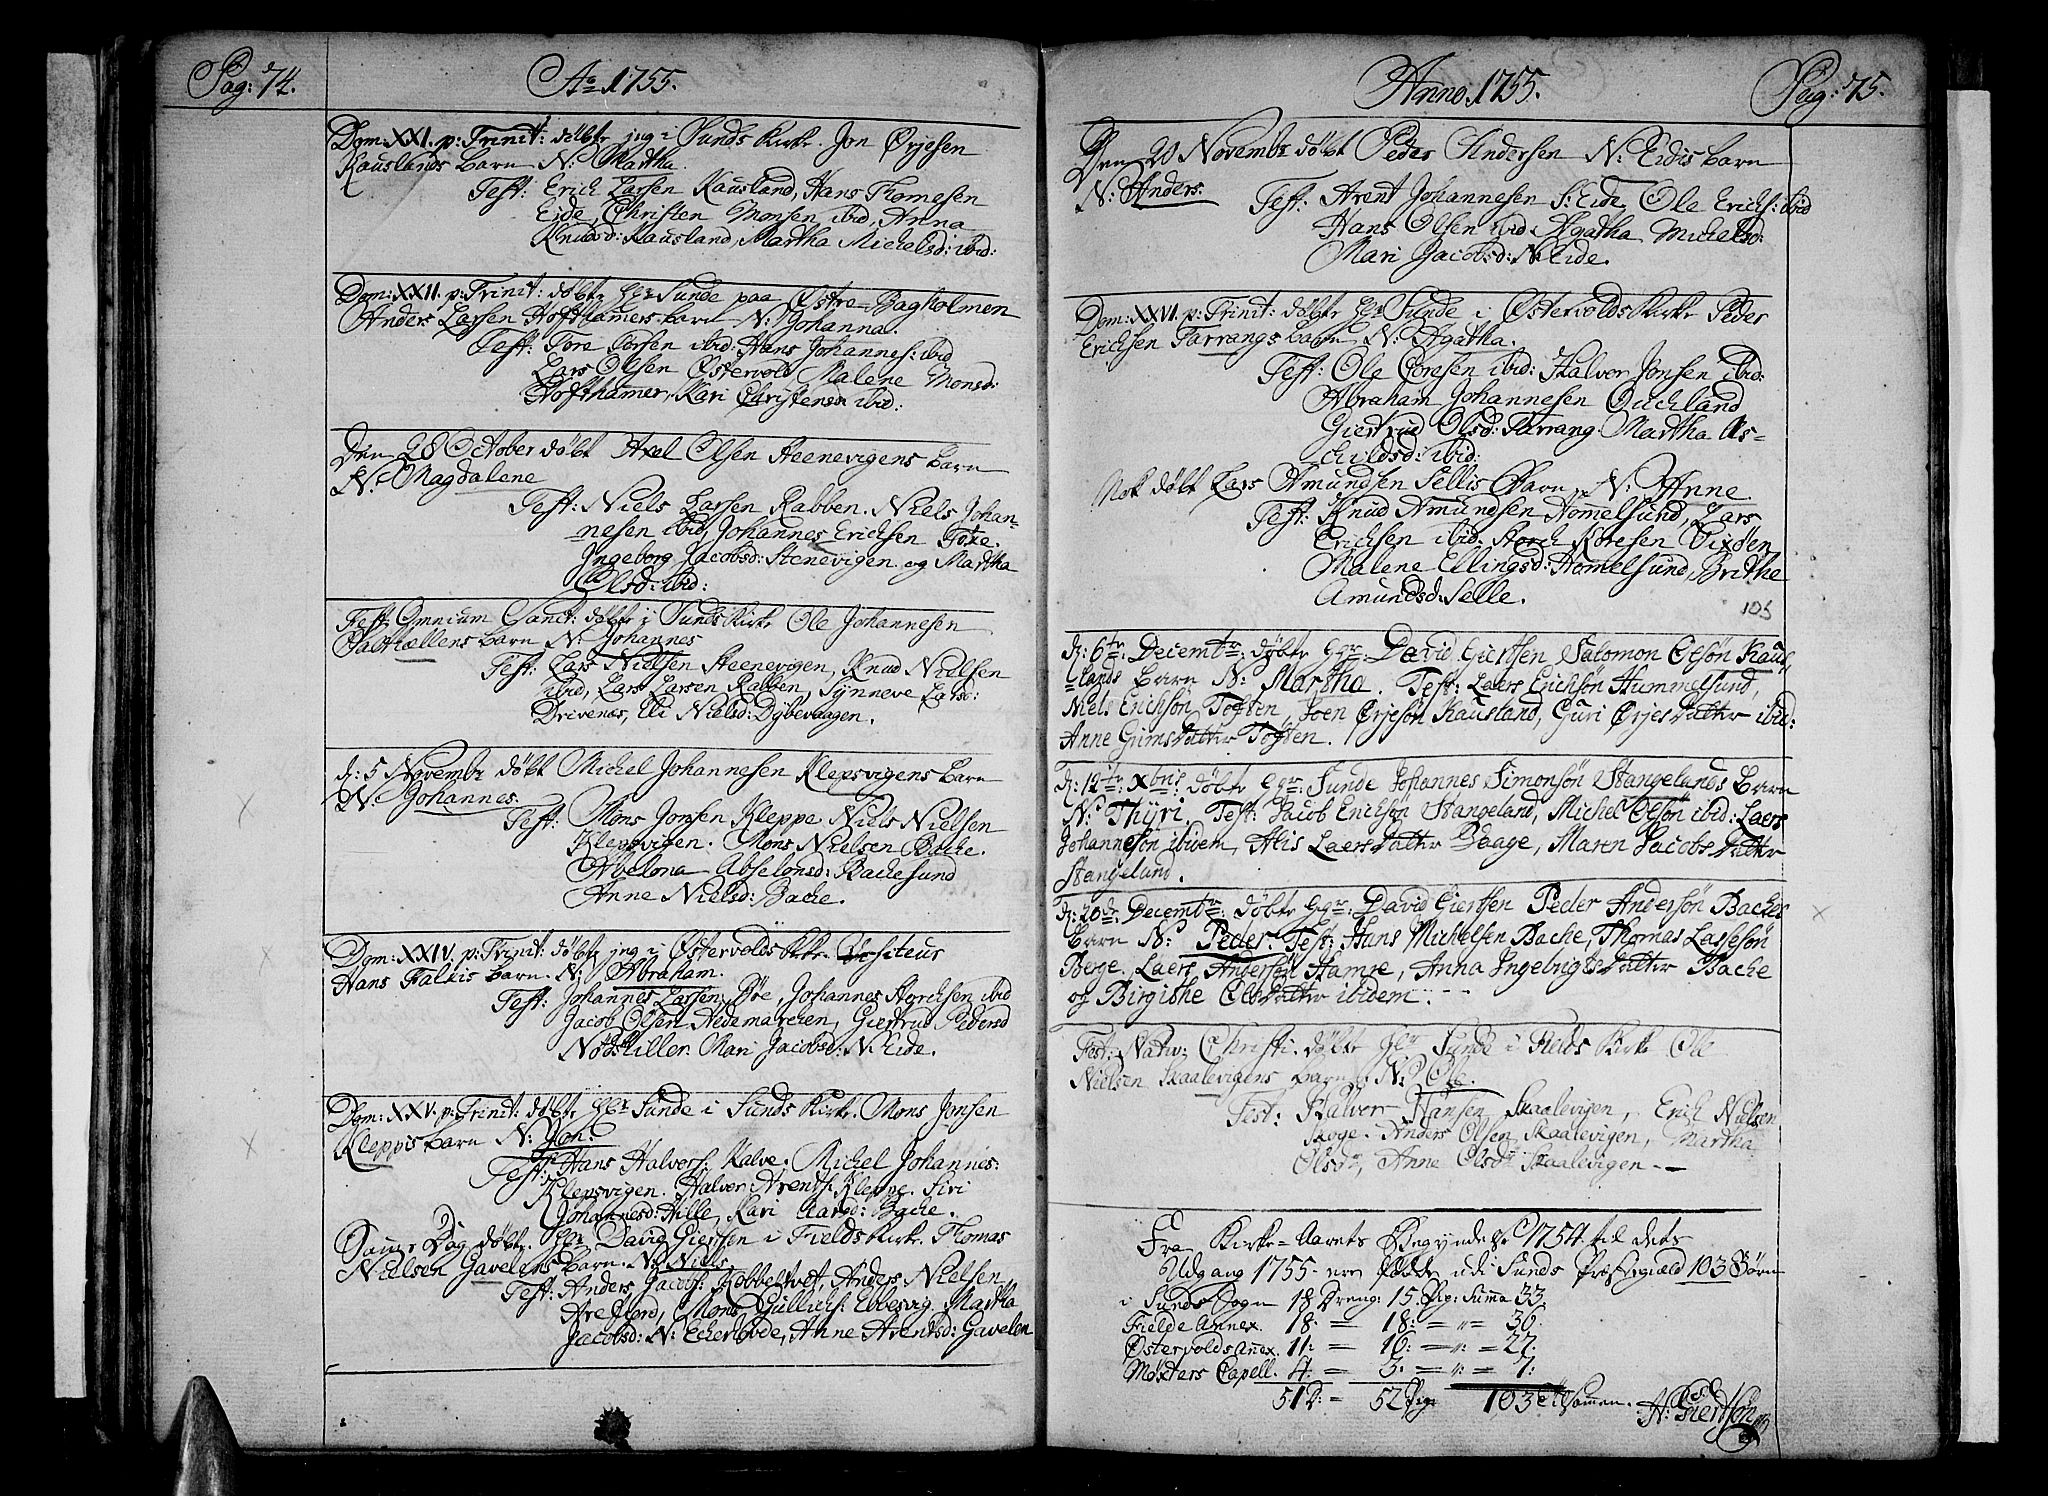 Pag: 74.
Ao 1755.
Dom: XXI. p: Trinit: døbte jeg i Sunds Kirke Jon Ørjesen
Kauslands barn N: Martha
Test: Erich Larsen Kausland, Hans Thomesen
Eide, Christen Monsen ibid: Anna
Knudsd: Kausland, Martha Michelsd: ibid:
Dom: XXII. p: Trinit: døbte Hr Sunde paa Østre=Bagholmen
Anders Larsen Hofthamers barn N: Johanna.
Test: Tore Torsen ibid: Hans Johannes: ibid
Lars Olsen Østervold Malene Monsd:
Hofthamer, Kari Christensd: ibid:
Den 28 October døbt Axel Olsen Steenevigens barn
N: Magdalene
Test: Niels Larsen Rabben. Niels Johan-
nesen ibid, Johannes Erichsen Toxe.
Ingeborg Jacobsd: Stenevigen og Martha
Olsd: ibid:
Fest: Omnium Sanct: døbt i Sunds Kirke Ole Johannesen
barn N: Johannes
Test: Lars Nielsen Steenevigen, Knud Nielsen
ibid, Lars Larsen Rabben, Synneve Larsd:
Drivenæs, Eli Nielsd: Dybevaagen.
d: 5 Novembr døbt Michel Johannesen Klepsvigens barn
N: Johannes.
Test: Mons Jonsen Kleppe Niels Nielsen
Klepsvigen. Mons Nielsen Bache.
Abelona Abselonsd: Bachesund
Anne Nielsd: Bache.
Dom: XXIV. p: Trinit: døbte jeg i Østervolds Kirke
Hans Falkis barn. N: Abraham.
Test: Johannes Larsen Bøe, Johannes Storchsen ibid
Jacob Olsen Hedemarcken, Giertrud Pedersd
Nodskiller. Mari Jacobsd: N. Eide.
Dom: XXV. p: Trinit: døbte Hr Sunde i Sunds Kirke. Mons Jonsen
Kleppis barn N: Jon.
Test: Hans Halvors: Kalve. Michel Johannes:
Klepsvigen. Halver Arents: Kleppe. Siri
Johannesd: Hille, Kari Clarsd: Bache.
Samme Dag døbte Hr David Giertsen i Fields Kirke. Thomas
Nielsen Gavelens barn. N: Niels.
Test: Anders Jacobs: Kobbeltvet, Anders Nielsen
Arefiord, Mons Gullichs: Ebbesvig. Martha
Jacobsd: N: Eckerhovde, Anne Arentsd: Gavelen
Anno. 1755.
Pag: 75.
Den 20 Novembr døbt Peder Andersen N: Eidis barn
N: Anders.
Test: Arent Johannesen S: Eide Ole Erichs: ibid
Hans Olsen ibid Agatha Michelsd:
Mari Jacobsd: N: Eide.
Dom: XXVI. p: Trinit: døbte Hr Sunde i Østervolds Kirke Peder
Erichsen Tarrangs barn N: Agatha.
Test: Ole Toresen ibid: Halver Jonsen ibid:
Abraham Johannesen Ouchland
Giertrud Olsd: Tarrang. Martha As-
childsd: ibid:
Nok døbt Lars Amundsen Sellis Barn, N: Anne
Test: Knud Amundsen Homelsund, Lars
Erichsen ibid: Storch Koresen Vixøen
Malene Ellingsd: Homelsund, Brithe
Amundsd: Selle.
103
d: 6te Decembr: døbte Hgr: David Giertsen, Salomon Olsøn Kaus-
lands barn N: Martha. Test: Laers Erichsøn Hummelsund,
Niels Erichsøn Toften, Joen Ørjesøn Kausland, Guri Ørjesdatter ibid:
Anne Gunnsdatter Toften.
d: 12te Xbris døbte Hgr: Sunde Johannes Simonsøn Stangelands barn
N: Thyri. Test: Jacob Erichsøn Stangeland, Michel Olsøn ibid: Laers
Johannesøn ibidem, Alis Laersdatter Vaage, Maren Jacobsdatter
Stangeland.
d: 20de Decembr: døbte Hgr: David Giertsen Peder Andersøn Baches
barn N: Peder. Test: Hans Michelsen Bache, Thomas Lassesøn
Berge, Laers Andersøn Hamre, Anna Ingebrigtsdatter Bache
og Birgithe Olsdatter ibidem.
Fest: Nativ: Christi. døbte Hr Sunde i Fields Kirke Ole
Nielsen Skaalevigens barn. N: Ole.
Test: Halver Hansen Skaalevigen, Erich Nielsen
Skoge. Anders Olsen Skaalevigen, Martha
Olsdr, Anne Olsdr Skaalevigen.
Fra Kirke=Aarets Begyndelse 1754 til dets
Udgang 1755 ere fødde udi Sunds Præstegield 103 Børn
i Sunds Sogn 18 Dreng: 15. Pig: Summa 33.
Fielde Annex. 18: = 18: = " = 36:
Østervolds Anex. 11: = 16: = ": = 27:
Møxters Capell. 4: = 3: = ": = 7:
51 D: = 52 Pig: 103 Tilsammen.